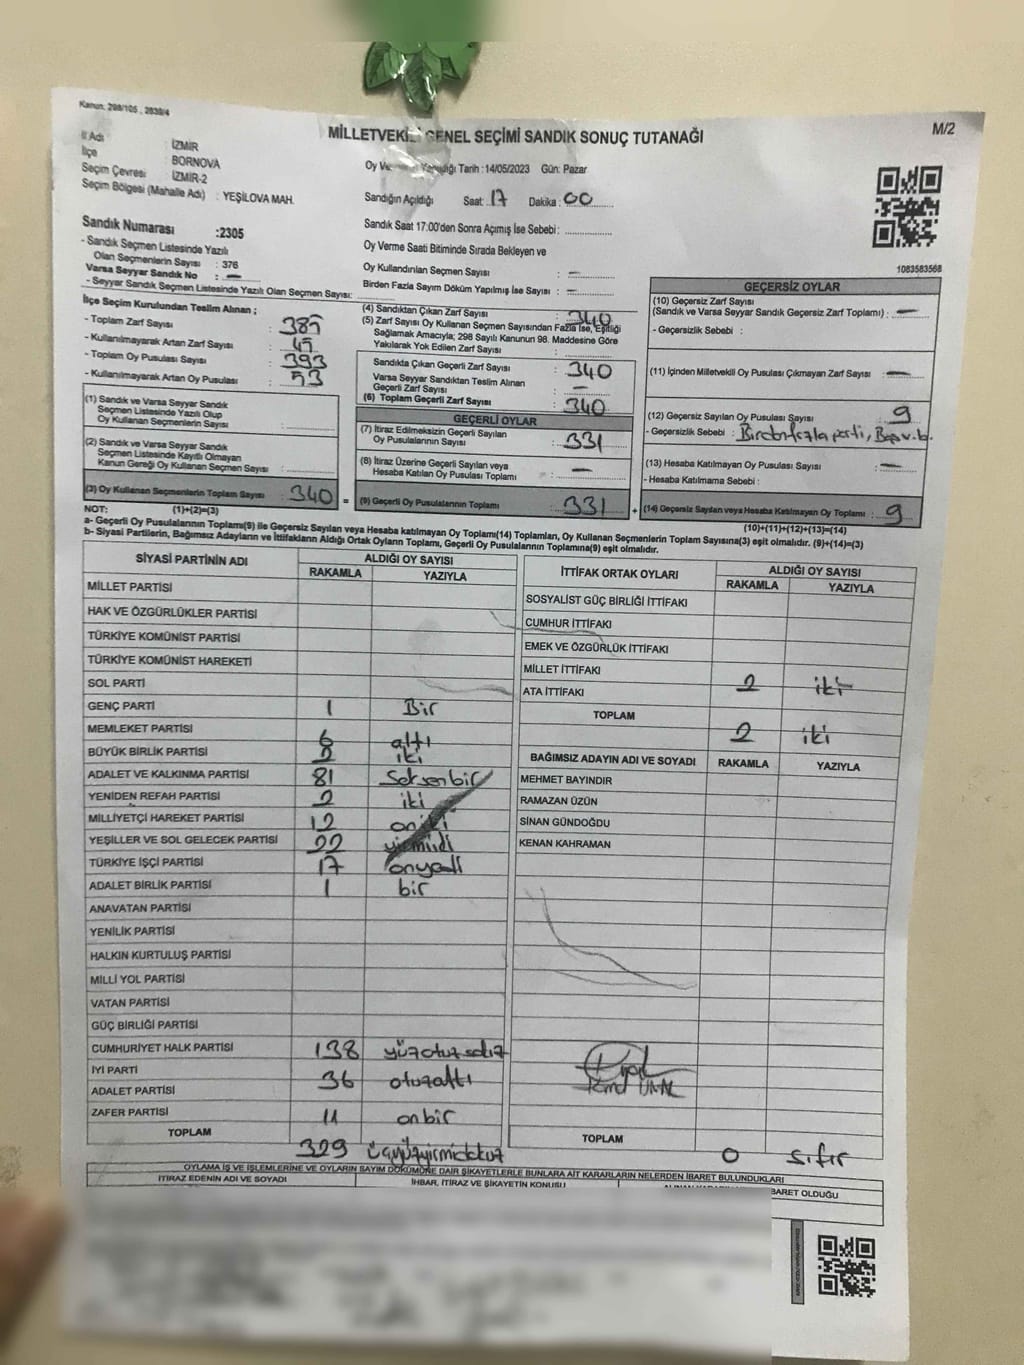 Kanun: 298/105 , 2839/4
MİLLETVEKİLİ GENEL SEÇİMİ SANDIK SONUÇ TUTANAĞI
M/2
İl Adı : İZMİR
İlçe : BORNOVA
Seçim Çevresi : İZMİR-2
Seçim Bölgesi (Mahalle Adı) : YEŞİLOVA MAH.
Oy Ve Yapıldığı Tarih :14/05/2023 Gün: Pazar
Sandığın Açıldığı Saat : 17 Dakika : 00
Sandık Saat 17.00'den Sonra Açımış İse Sebebi :
Oy Verme Saati Bitiminde Sırada Bekleyen ve
Oy Kullandırılan Seçmen Sayısı : –
Birden Fazla Sayım Döküm Yapılmış İse Sayısı : –
Sandık Numarası :2305
- Sandık Seçmen Listesinde Yazılı
Olan Seçmenlerin Sayısı : 376
Varsa Seyyar Sandık No : –
- Seyyar Sandık Seçmen Listesinde Yazılı Olan Seçmen Sayısı:
1083583568
İlçe Seçim Kurulundan Teslim Alınan ;
- Toplam Zarf Sayısı : 385
- Kullanılmayarak Artan Zarf Sayısı : 45
- Toplam Oy Pusulası Sayısı : 393
- Kullanılmayarak Artan Oy Pusulası : 53
(1) Sandık ve Varsa Seyyar Sandık
Seçmen Listesinde Yazılı Olup
Oy Kullanan Seçmenlerin Sayısı :
(2) Sandık ve Varsa Seyyar Sandık
Seçmen Listesinde Kayıtlı Olmayan
Kanun Gereği Oy Kullanan Seçmen Sayısı :
(3) Oy Kullanan Seçmenlerin Toplam Sayısı : 340 =
(4) Sandıktan Çıkan Zarf Sayısı : 340
(5) Zarf Sayısı Oy Kullanan Seçmen Sayısından Fazla İse, Eşitliği
Sağlamak Amacıyla; 298 Sayılı Kanunun 98. Maddesine Göre
Yakılarak Yok Edilen Zarf Sayısı :
Sandıkta Çıkan Geçerli Zarf Sayısı : 340
Varsa Seyyar Sandıktan Teslim Alınan
Geçerli Zarf Sayısı : –
(6) Toplam Geçerli Zarf Sayısı : 340
GEÇERLİ OYLAR
(7) İtiraz Edilmeksizin Geçerli Sayılan
Oy Pusulalarının Sayısı : 331
(8) İtiraz Üzerine Geçerli Sayılan veya
Hesaba Katılan Oy Pusulaları Toplamı : –
(9) Geçerli Oy Pusulalarının Toplamı : 331 +
GEÇERSİZ OYLAR
(10) Geçersiz Zarf Sayısı
(Sandık ve Varsa Seyyar Sandık Geçersiz Zarf Toplamı) : –
- Geçersizlik Sebebi :
(11) İçinden Milletvekili Oy Pusulası Çıkmayan Zarf Sayısı : –
(12) Geçersiz Sayılan Oy Pusulası Sayısı : 9
- Geçersizlik Sebebi : Birden fazla parti, Boş v.b.
(13) Hesaba Katılmayan Oy Pusulası Sayısı : –
- Hesaba Katılmama Sebebi :
(14) Geçersiz Sayılan veya Hesaba Katılmayan Oy Toplamı : 9
NOT: (1)+(2)=(3)
(10)+(11)+(12)+(13)=(14)
a- Geçerli Oy Pusulalarının Toplamı(9) ile Geçersiz Sayılan veya Hesaba katılmayan Oy Toplamı(14) Toplamları, Oy Kullanan Seçmenlerin Toplam Sayısına(3) eşit olmalıdır. (9)+(14)=(3)
b- Siyasi Partilerin, Bağımsız Adayların ve İttifakların Aldığı Ortak Oyların Toplamı, Geçerli Oy Pusulalarının Toplamına(9) eşit olmalıdır.
SİYASİ PARTİNİN ADI ALDIĞI OY SAYISI
RAKAMLA YAZIYLA
MİLLET PARTİSİ
HAK VE ÖZGÜRLÜKLER PARTİSİ
TÜRKİYE KOMÜNİST PARTİSİ
TÜRKİYE KOMÜNİST HAREKETİ
SOL PARTİ
GENÇ PARTİ 1 Bir
MEMLEKET PARTİSİ 6 altı
BÜYÜK BİRLİK PARTİSİ 2 iki
ADALET VE KALKINMA PARTİSİ 81 Seksenbir
YENİDEN REFAH PARTİSİ 2 iki
MİLLİYETÇİ HAREKET PARTİSİ 12 oniki
YEŞİLLER VE SOL GELECEK PARTİSİ 22
TÜRKİYE İŞÇİ PARTİSİ 17 onyedi
ADALET BİRLİK PARTİSİ 1 bir
ANAVATAN PARTİSİ
YENİLİK PARTİSİ
HALKIN KURTULUŞ PARTİSİ
MİLLİ YOL PARTİSİ
VATAN PARTİSİ
GÜÇ BİRLİĞİ PARTİSİ
CUMHURİYET HALK PARTİSİ 138 yüzotuzsekiz
İYİ PARTİ 36 otuzaltı
ADALET PARTİSİ
ZAFER PARTİSİ 11 onbir
TOPLAM 329 üçyüzyirmidokuz
İTTİFAK ORTAK OYLARI ALDIĞI OY SAYISI
RAKAMLA YAZIYLA
SOSYALİST GÜÇ BİRLİĞİ İTTİFAKI
CUMHUR İTTİFAKI
EMEK VE ÖZGÜRLÜK İTTİFAKI
MİLLET İTTİFAKI 2 iki
ATA İTTİFAKI
TOPLAM 2 iki
BAĞIMSIZ ADAYIN ADI VE SOYADI RAKAMLA YAZIYLA
MEHMET BAYINDIR
RAMAZAN ÜZÜN
SİNAN GÜNDOĞDU
KENAN KAHRAMAN
TOPLAM 0 sıfır
OYLAMA İŞ VE İŞLEMLERİNE VE OYLARIN SAYIM DÖKÜMÜNE DAİR ŞİKAYETLERLE BUNLARA AİT KARARLARIN NELERDEN İBARET BULUNDUKLARI
İTİRAZ EDENİN ADI VE SOYADI İHBAR, İTİRAZ VE ŞİKAYETİN KONUSU BARET OLDUĞU